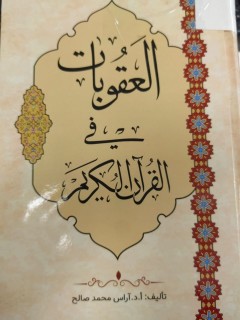 العقوبات
في
القرآن الكريم
تأليف: أ.د. آراس محمد صالح